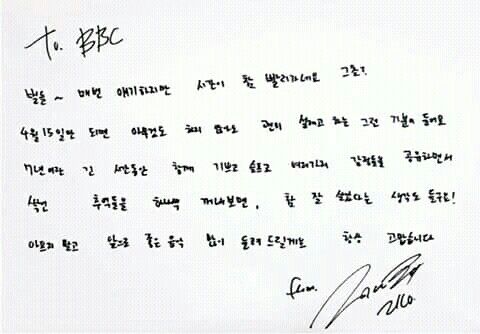 To. BBC
벌들~ 매번 얘기하지만 시간이 참 빨리가네요 그죠?
4월 15일만 되면 아무것도 하지 않아도 괜히 설레고 하는 그런 기분이 들어요
7년이란 긴 시간동안 함께 기쁘고 슬프고 여러가지 감정들을 공유하면서
쌓인 추억들을 하나씩 꺼내보면, 참 잘 살았다는 생각도 들구요!
아프지 말고 앞으로 좋은 음악 많이 들려 드릴게요 항상 고맙습니다
from.
ZICO.